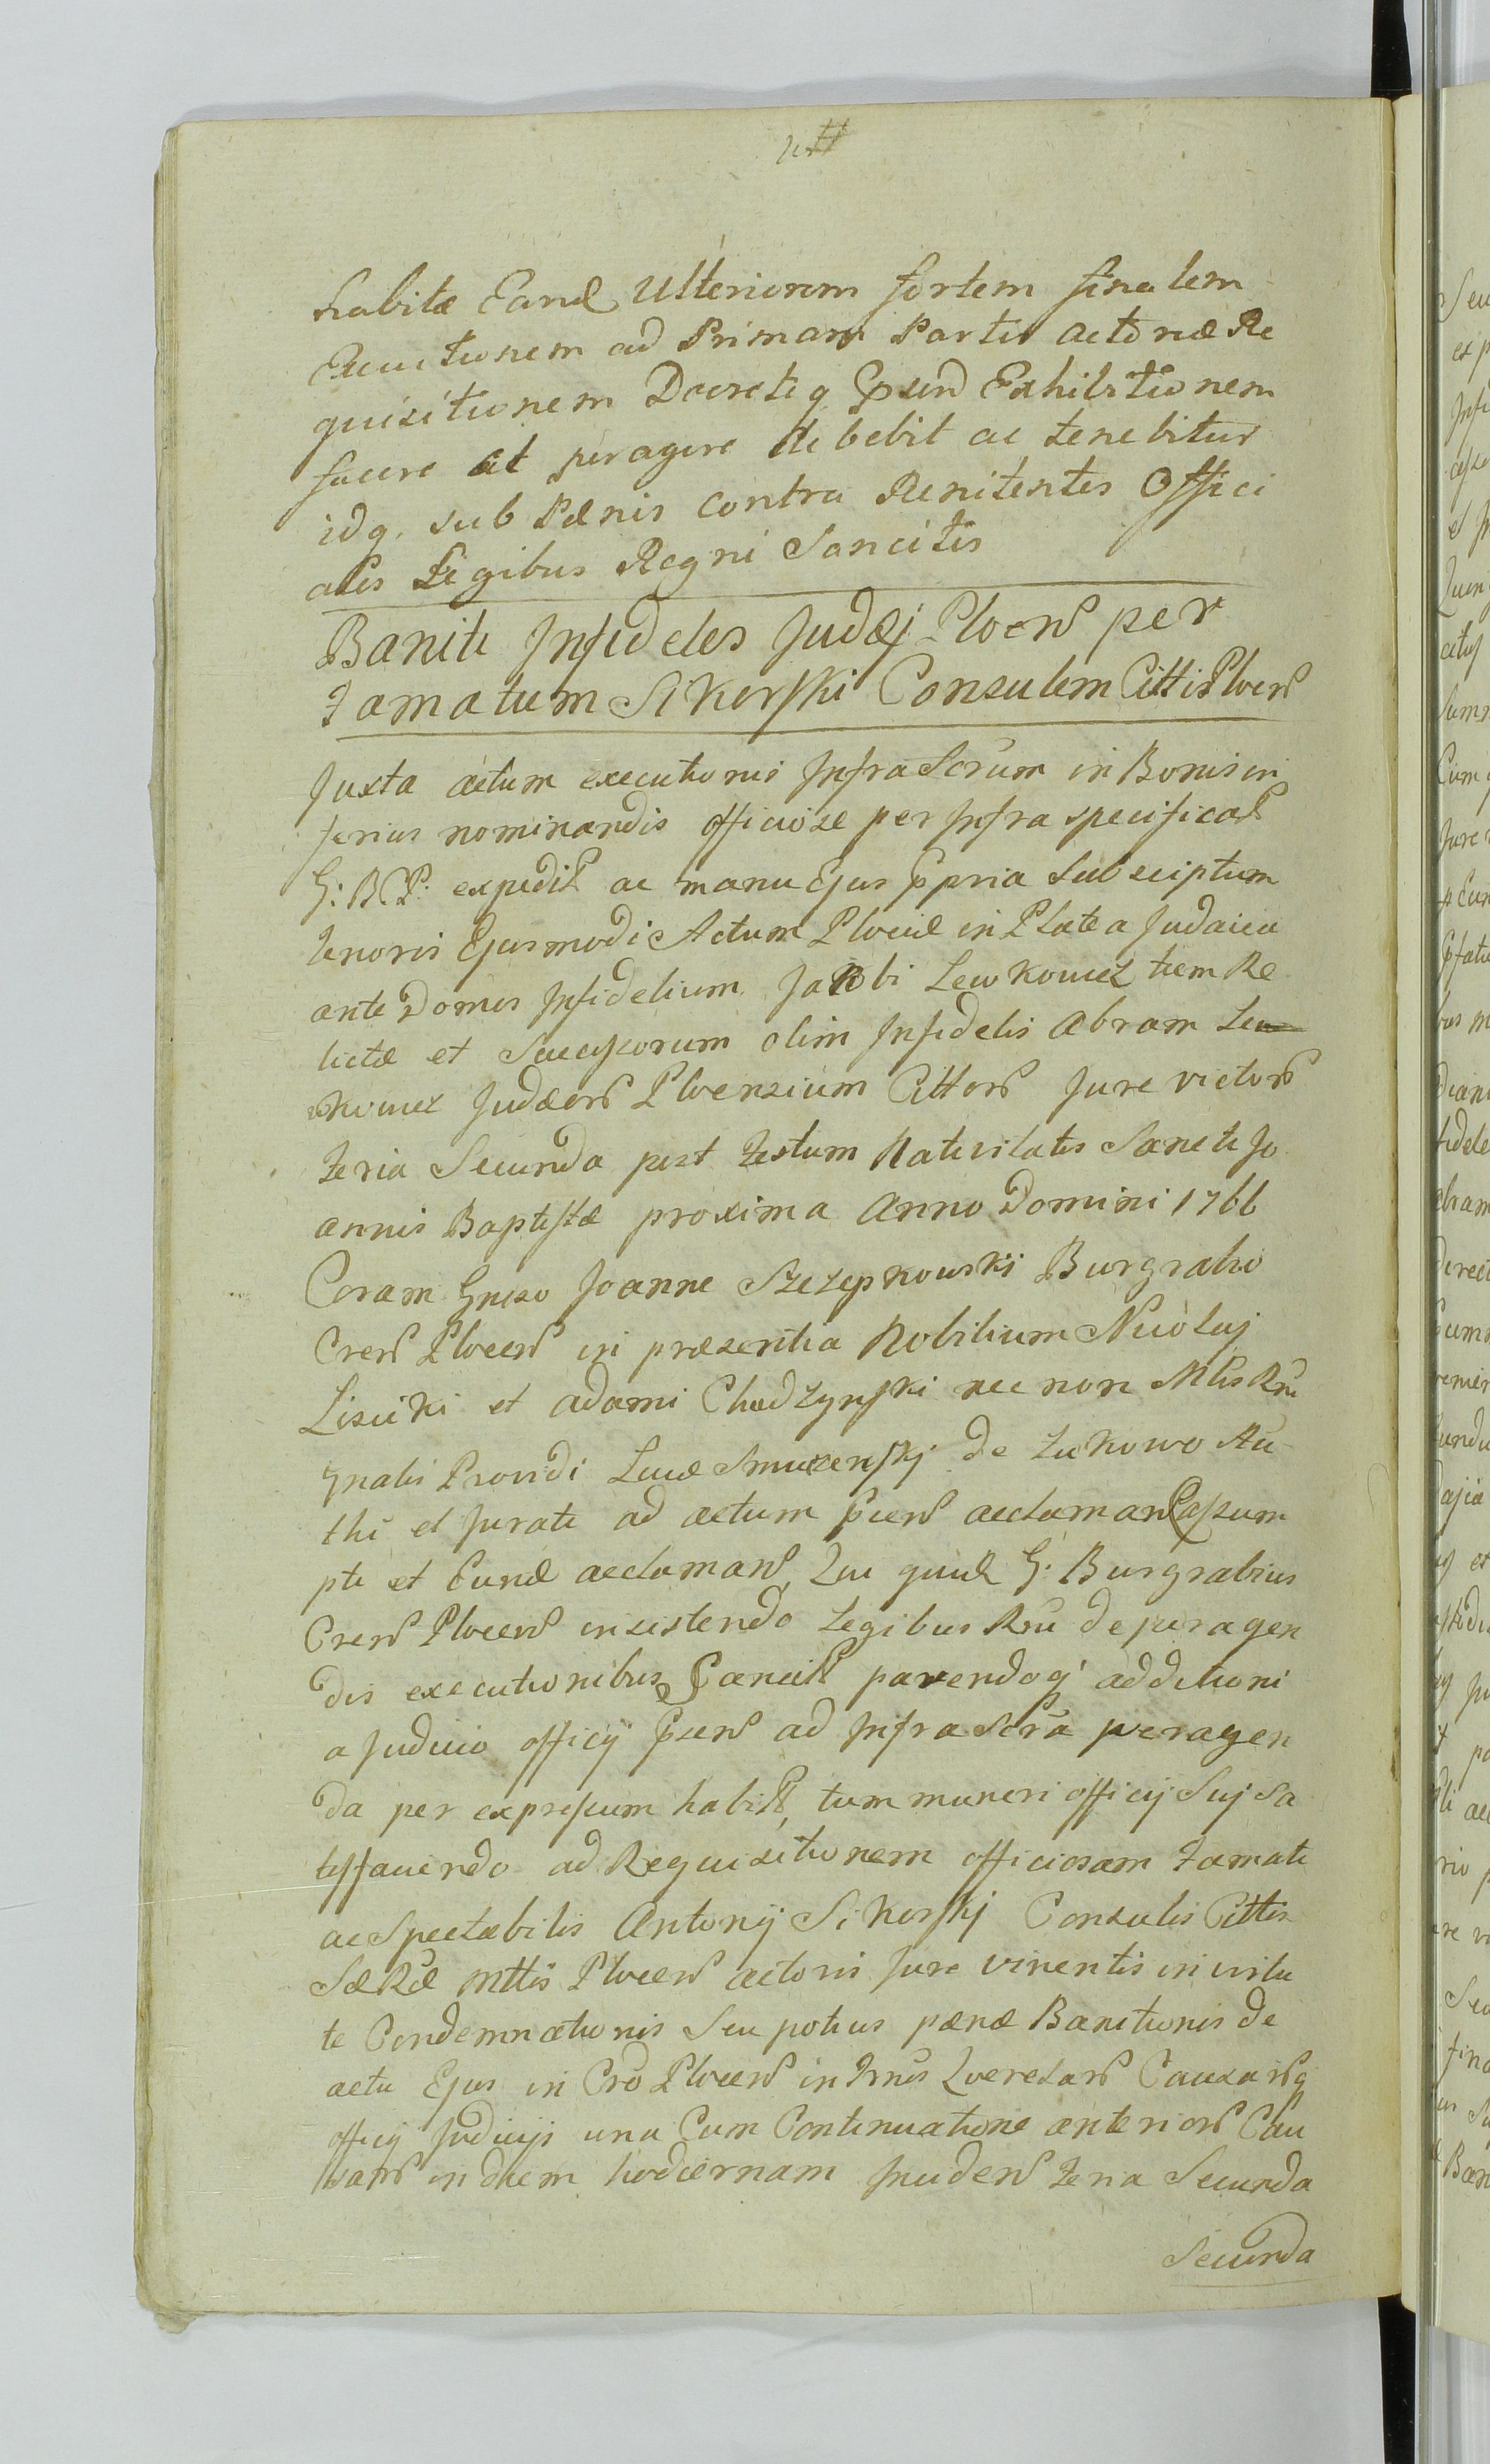 habitæ Eand Ulteriorem fortem finalem
Executionem ad Primam Partis Actoreæ Re
quisitionem Decretiq Epsend Exhibitionem
facere at peragere debebit ac tenebitur
idq. sub Pænis contra Renitentes Offici
ales Legibus Regni Sancitis
Baniti Infideles Judæj Plocen per
Famatum Sikorski Consulem Cittis Plocen
Juxta actum executionis Infra Scrum in Bonis in
ferius nominandis officiose per Infra specificat
G: B C P: expedit ac manu Ejus ppria Subscriptum
tenoris Ejusmodi Actum Plociæ in Platea Judaica
ante Domos Infidelium Jakobi Lewkowicz tum Re
lictæ et Successorum olim Infidelis Abram Lew
kowicz Judæor Plocensium Cittor Jure victor
Feria Secunda post Festum Nativitatis Sancti Jo
annis Baptistæ proxima Anno Domini 1766
Coram Gnoso Joanne Szczepkowski Burgrabio
Cren Plocen in præsentia Nobilium Nicolaj
Lisicki et Adami Chodzynski nec non Mlis Rni
gnalis Providi Lucæ Smuszenskj de Lukowo Au
thi et Jurati ad actum pscen acclaman assum
pti et Eund acclaman, Qui quid G: Burgrabius
Cren Plocen insistendo Legibus Rni de peragen
dis executionibus Sancit parendoq additioni
a Judicio officij pscen ad Infra Scra peragen
da per expressum habit, tum muneri officij Suj Sa
tisfaciendo ad Requisitionem officiosam Famati
ac Spectabilis Antonij Sikorskj Consulis Cittis
Sæ Ræ Mttis Plocen actoris Jure vincentis in virtu
te Condemnationis Seu potius pænæ Banitionis de
actu Ejus in Cro Plocen in Trnis Querelar Causarq
officij Judicijs una Cum Continuatione anterior Cau
sar in diem hodiernam Inciden Feria Secunda
Secunda